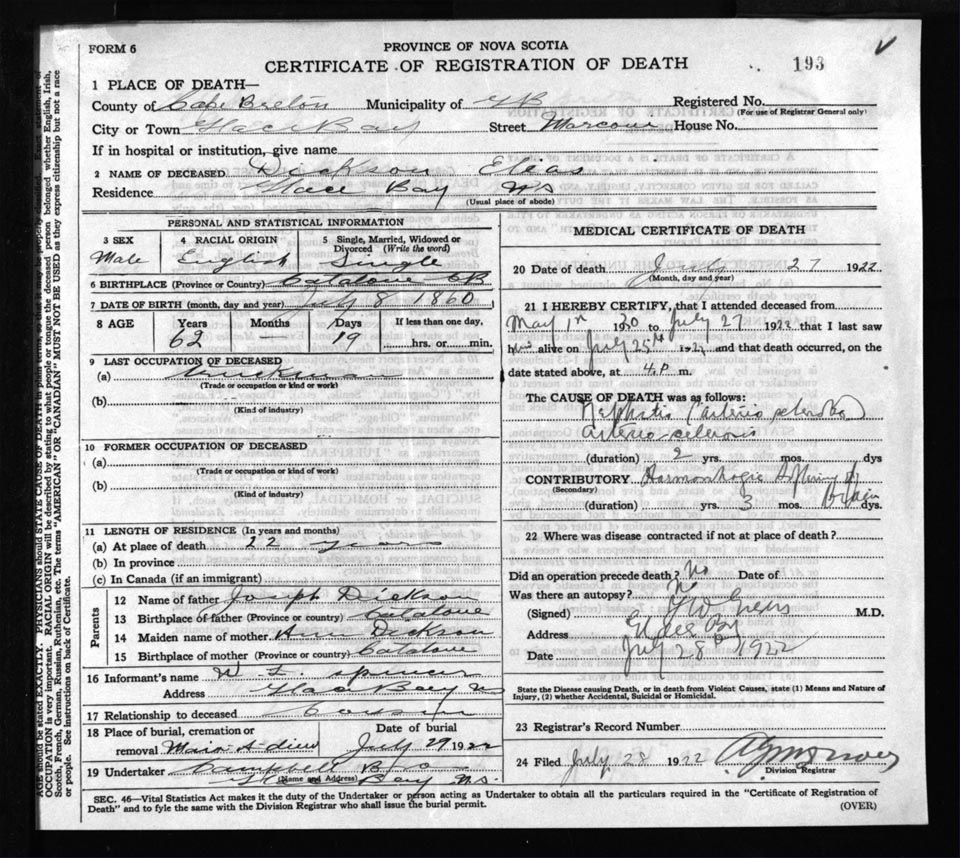 FORM 6
PROVINCE OF NOVA SCOTIA
CERTIFICATE OF REGISTRATION OF DEATH
193
1 PLACE OF DEATH—
County of Cape Breton Municipality of Registered No.
(For use of Registrar General only)
City or Town Glace Bay Street House No.
If in hospital or institution, give name
2 NAME OF DECEASED Dickson Elias
Residence Glace Bay NS
(Usual place of abode)
PERSONAL AND STATISTICAL INFORMATION
3 SEX 4 RACIAL ORIGIN 5 Single, Married, Widowed or Divorced (Write the word)
Male English Single
6 BIRTHPLACE (Province or Country) Catalone CB
7 DATE OF BIRTH (month, day and year) July 8 1860
8 AGE Years Months Days If less than one day,
62 — 19 hrs. or min.
9 LAST OCCUPATION OF DECEASED
(a) Truckman
(Trade or occupation or kind of work)
(b)
(Kind of industry)
10 FORMER OCCUPATION OF DECEASED
(a)
(Trade or occupation or kind of work)
(b)
(Kind of industry)
11 LENGTH OF RESIDENCE (In years and months)
(a) At place of death 22 years
(b) In province
(c) In Canada (if an immigrant)
Parents
12 Name of father Joseph Dickson
13 Birthplace of father (Province or country) Catalone
14 Maiden name of mother Ann Dickson
15 Birthplace of mother (Province or country) Catalone
16 Informant's name W
Address Glace Bay NS
17 Relationship to deceased Cousin
18 Place of burial, cremation or removal Date of burial
Mira July 29 1922
19 Undertaker Campbell
(Name and Address) Bay N.S.
MEDICAL CERTIFICATE OF DEATH
20 Date of death July 27 1922
(Month, day and year)
21 I HEREBY CERTIFY, that I attended deceased from
May 1st 1920 to July 27 1922 that I last saw
him alive on July 25th 1922 and that death occurred, on
date stated above, at 4 P m.
The CAUSE OF DEATH was as follows:
arterio sclerosis
(duration) 2 yrs. mos. dys
CONTRIBUTORY
(Secondary)
(duration) yrs. 3 mos. dys.
22 Where was disease contracted if not at place of death?
Did an operation precede death? No Date of
Was there an autopsy? No
(Signed) M.D.
Address Glace Bay
Date July 28 1922
State the Disease causing Death, or in death from Violent Causes, state (1) Means and Nature of Injury, (2) whether Accidental, Suicidal or Homicidal.
23 Registrar's Record Number
24 Filed July 28 1922
Division Registrar
SEC. 46—Vital Statistics Act makes it the duty of the Undertaker or person acting as Undertaker to obtain all the particulars required in the "Certificate of Registration of
Death" and to fyle the same with the Division Registrar who shall issue the burial permit. (OVER)
AGE should be stated EXACTLY. PHYSICIANS should STATE CAUSE OF DEATH in plain terms,
OCCUPATION is very important. RACIAL ORIGIN will be described by stating to what people or tongue the deceased person belonged whether English, Irish,
Scotch, French, German, Russian, Ruthenian, etc. The terms "AMERICAN" OR "CANADIAN" MUST NOT BE USED as they express citizenship but not a race
or people. See instructions on back of Certificate.